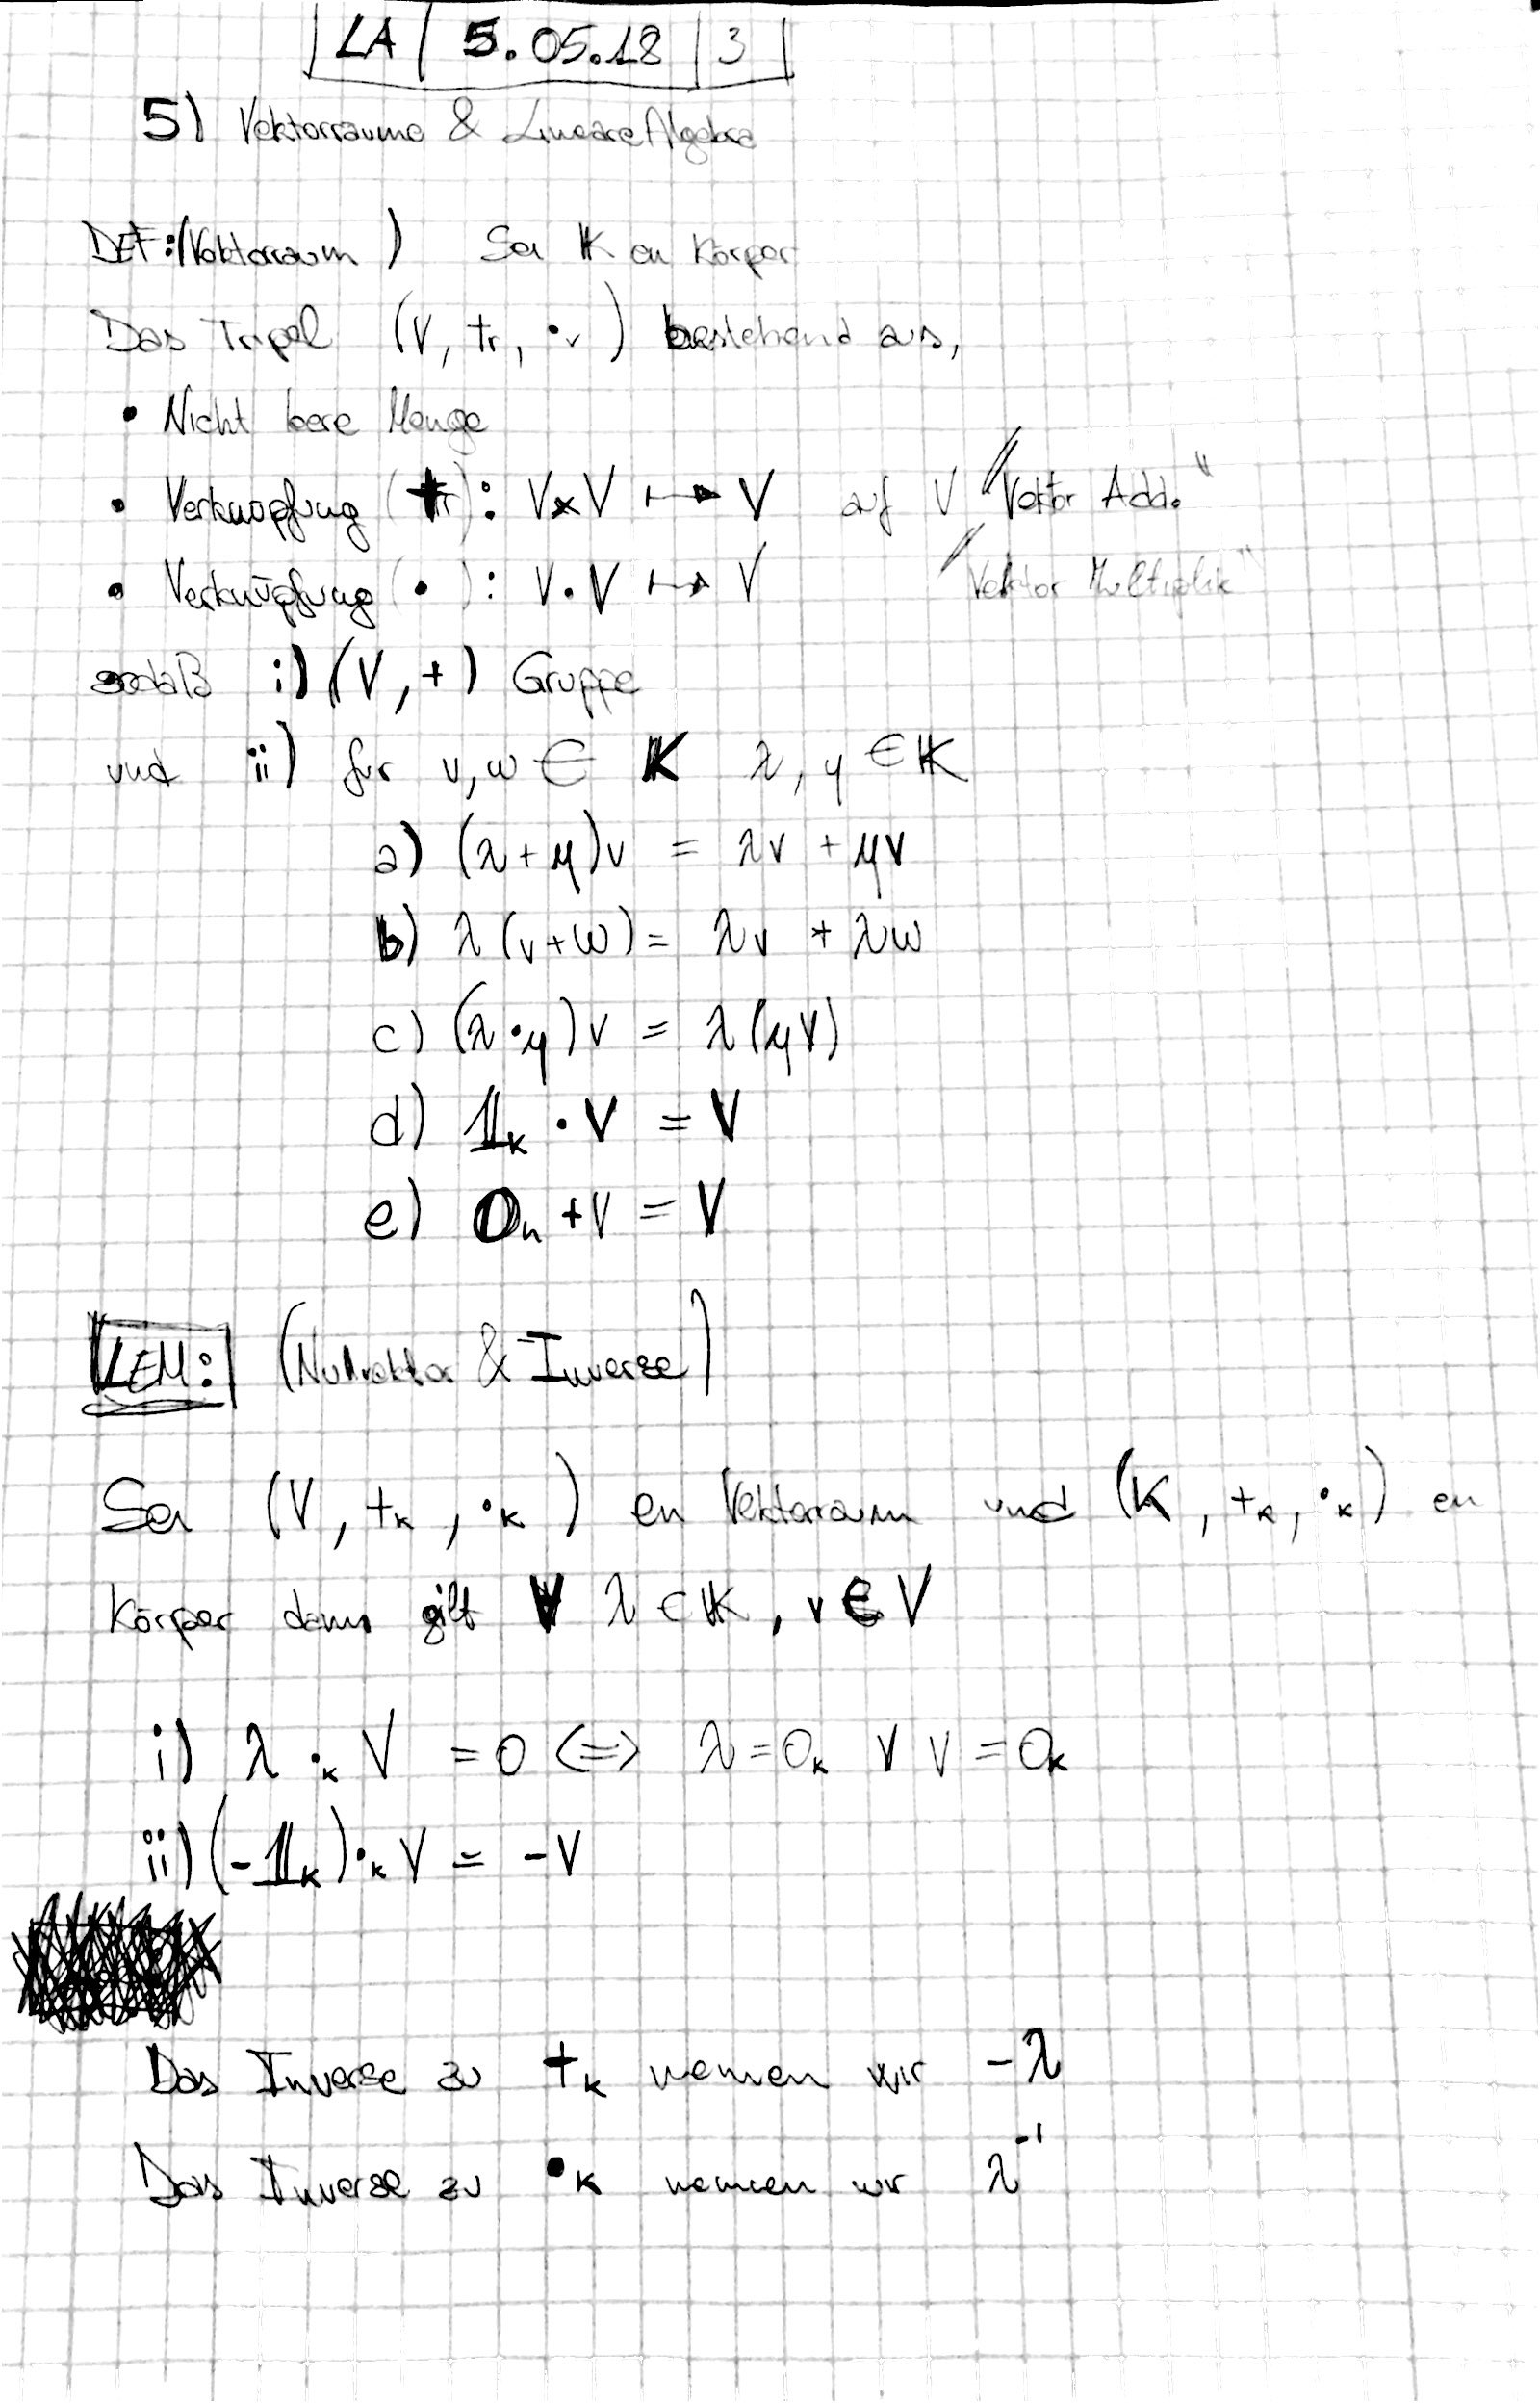 LA | 5.05.18 | 3
5) Vektorräume & Lineare Algebra
DEF:(Vektorraum) Sei 𝕂 ein Körper
Das Tripel (V, +ᵥ, ·ᵥ) bestehend aus,
• Nicht leere Menge
• Verknüpfung (+ᵥ): V×V ↦ V auf V "Vektor Add."
• Verknüpfung (·): V·V ↦ V "Vektor Multiplik"
sodaß i) (V,+) Gruppe
und ii) für v,w ∈ K λ, μ ∈ 𝕂
a) (λ+μ)v = λv + μv
b) λ(v+w) = λv + λw
c) (λ·μ)v = λ(μv)
d) 𝟙ₖ · V = V
e) 0ₙ + V = V
LEM: (Nullvektor & Inverse)
Sei (V, +ₖ, ·ₖ) ein Vektorraum und (K, +ₖ, ·ₖ) ein
Körper dann gilt ∀ λ ∈ 𝕂, v ∈ V
i) λ ·ₖ V = 0 <=> λ = 0ₖ ∨ V = 0ₖ
ii) (-𝟙ₖ) ·ₖ V = -V
Das Inverse zu +ₖ nennen wir -λ
Das Inverse zu ·ₖ nennen wir λ⁻¹